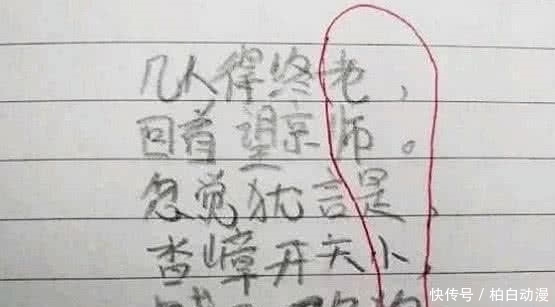 几人得终老，
回首望京师。
忽觉犹言是
杳嶂开天小
快传号／柏白动漫